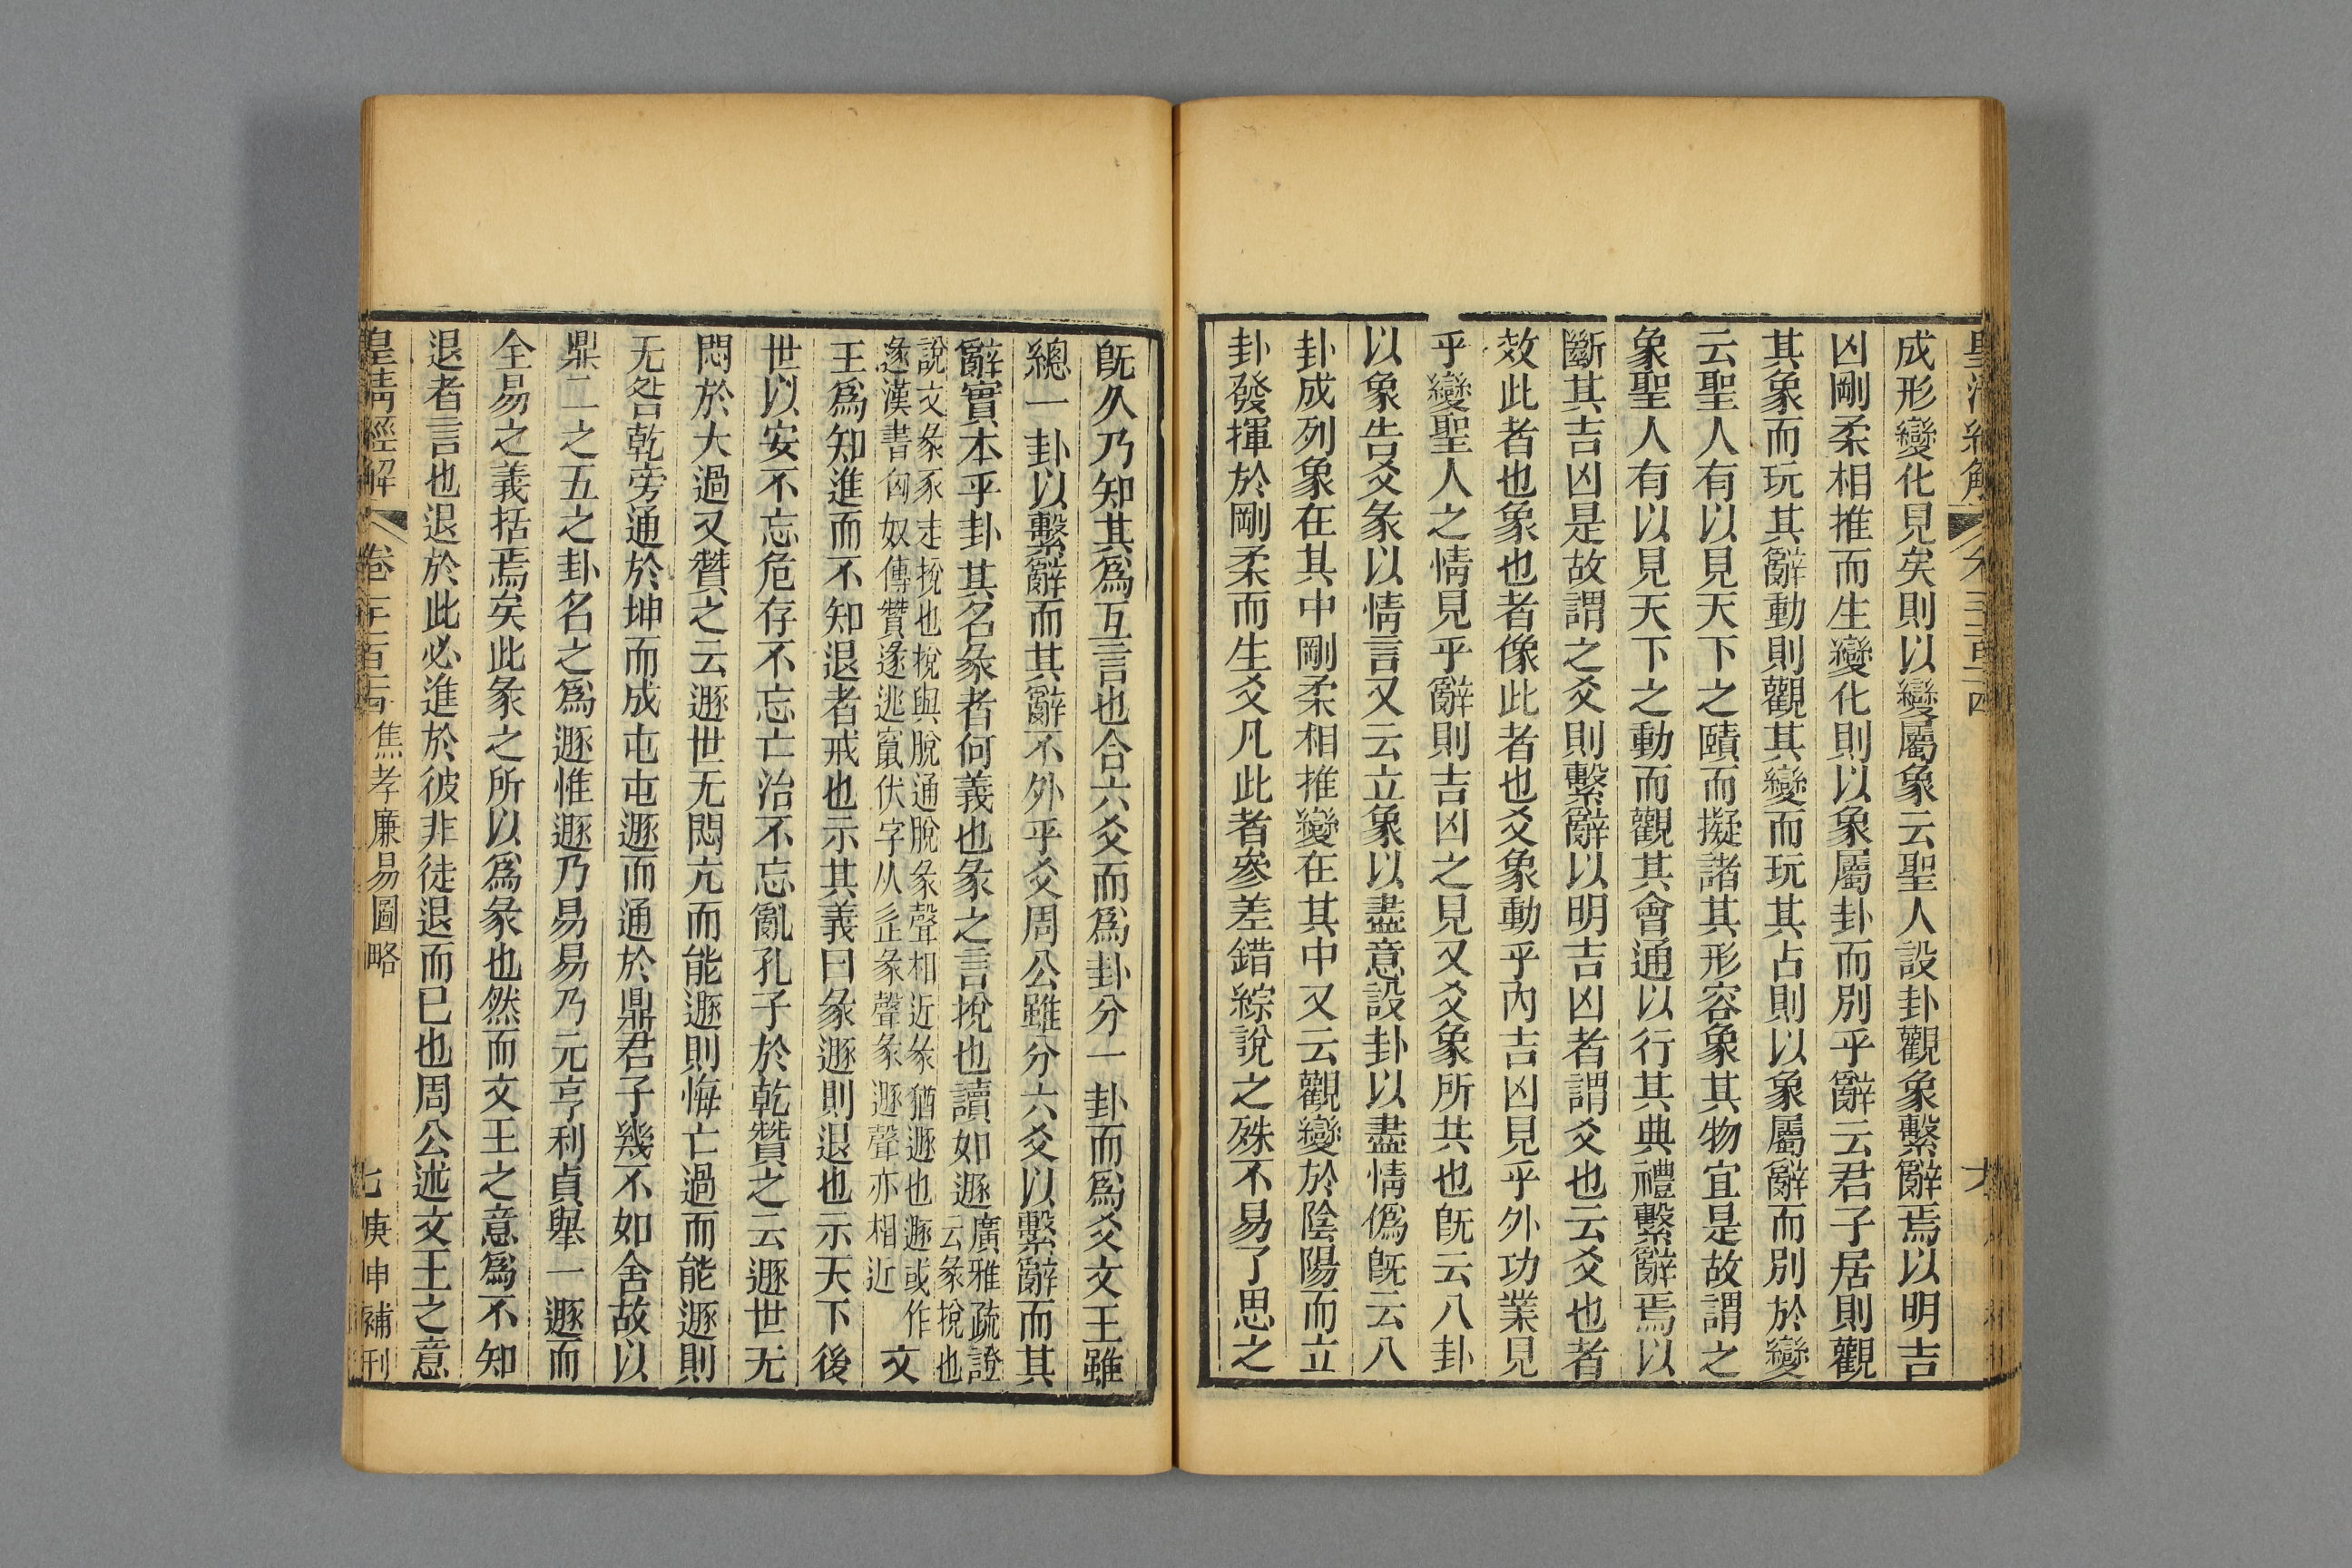 成形變化見矣則以變屬象云聖人設卦觀象繫辭焉以明吉
凶剛柔相推而生變化則以象屬卦而別乎辭云君子居則觀
其象而玩其辭動則觀其變而玩其占則以象屬辭而別於變
云聖人有以見天下之賾而擬諸其形容象其物宜是故謂之
象聖人有以見天下之動而觀其會通以行其典禮繫辭焉以
斷其吉凶是故謂之爻則繫辭以明吉凶者謂爻也云爻也者
效此者也象也者像此者也爻象動乎內吉凶見乎外功業見
乎變聖人之情見乎辭則吉凶之見又爻象所共也旣云八卦
以象告爻彖以情言又云立象以盡意設卦以盡情僞旣云八
卦成列象在其中剛柔相推變在其中又云觀變於陰陽而立
卦發揮於剛柔而生爻凡此者參差錯綜說之殊不易了思之
旣久乃知其爲互言也合六爻而爲卦分一卦而爲爻文王雖
總一卦以繫辭而其辭不外乎爻周公雖分六爻以繫辭而其
辭實本乎卦其名彖者何義也彖之言挩也讀如遯廣雅疏證
云彖挩也
說文彖豕走挩也挩與脫通脫彖聲相近彖猶遯也遯或作
遂漢書匈奴傳贊遂逃竄伏字从辵彖聲彖遯聲亦相近
文
王爲知進而不知退者戒也示其義曰彖遯則退也示天下後
世以安不忘危存不忘亡治不忘亂孔子於乾贊之云遯世无
悶於大過又贊之云遯世无悶亢而能遯則悔亡過而能遯則
无咎乾旁通於坤而成屯屯遯而通於鼎君子幾不如舍故以
鼎二之五之卦名之爲遯惟遯乃易易乃元亨利貞舉一遯而
全易之義括焉矣此彖之所以爲彖也然而文王之意爲不知
退者言也退於此必進於彼非徒退而已也周公述文王之意
皇清經解
卷一千一百
焦孝廉易圖略
七
庚申補刊